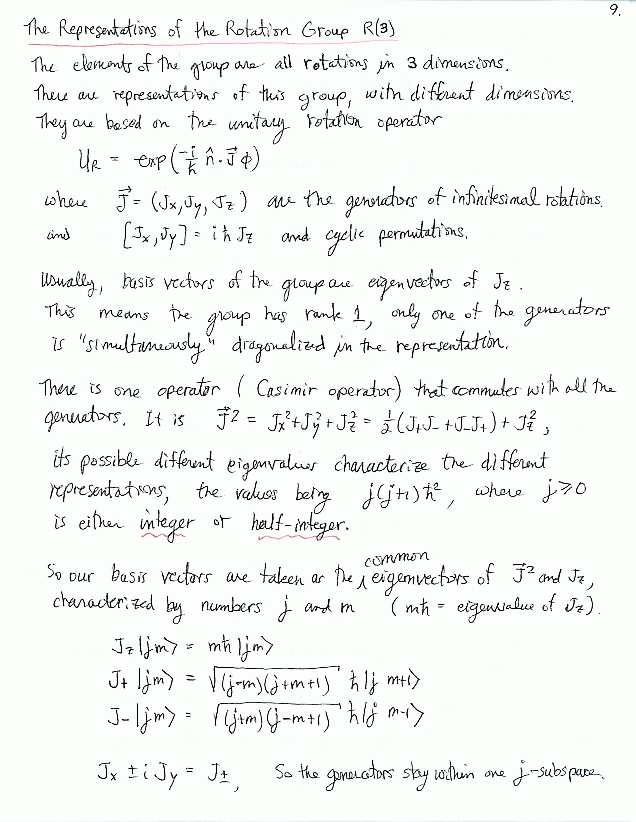 9.
The Representations of the Rotation Group R(3)
The elements of the group are all rotations in 3 dimensions.
There are representations of this group, with different dimensions.
They are based on the unitary rotation operator
U_R = exp(-i/ħ n̂·J⃗ ϕ)
where J⃗ = (Jx, Jy, Jz) are the generators of infinitesimal rotations.
and [Jx, Jy] = iħ Jz and cyclic permutations.
Usually, basis vectors of the group are eigenvectors of Jz.
This means the group has rank 1, only one of the generators
is "simultaneously" diagonalized in the representation.
There is one operator (Casimir operator) that commutes with all the
generators. It is J⃗² = Jx² + Jy² + Jz² = ½(J+J- + J-J+) + Jz²,
its possible different eigenvalues characterize the different
representations, the values being j(j+1)ħ², where j ≥ 0
is either integer or half-integer.
So our basis vectors are taken as the common eigenvectors of J⃗² and Jz,
characterized by numbers j and m (mħ = eigenvalue of Jz).
Jz |jm⟩ = mħ |jm⟩
J+ |jm⟩ = √(j-m)(j+m+1) ħ |j m+1⟩
J- |jm⟩ = √(j+m)(j-m+1) ħ |j m-1⟩
Jx ± i Jy = J±, So the generators stay within one j-subspace.